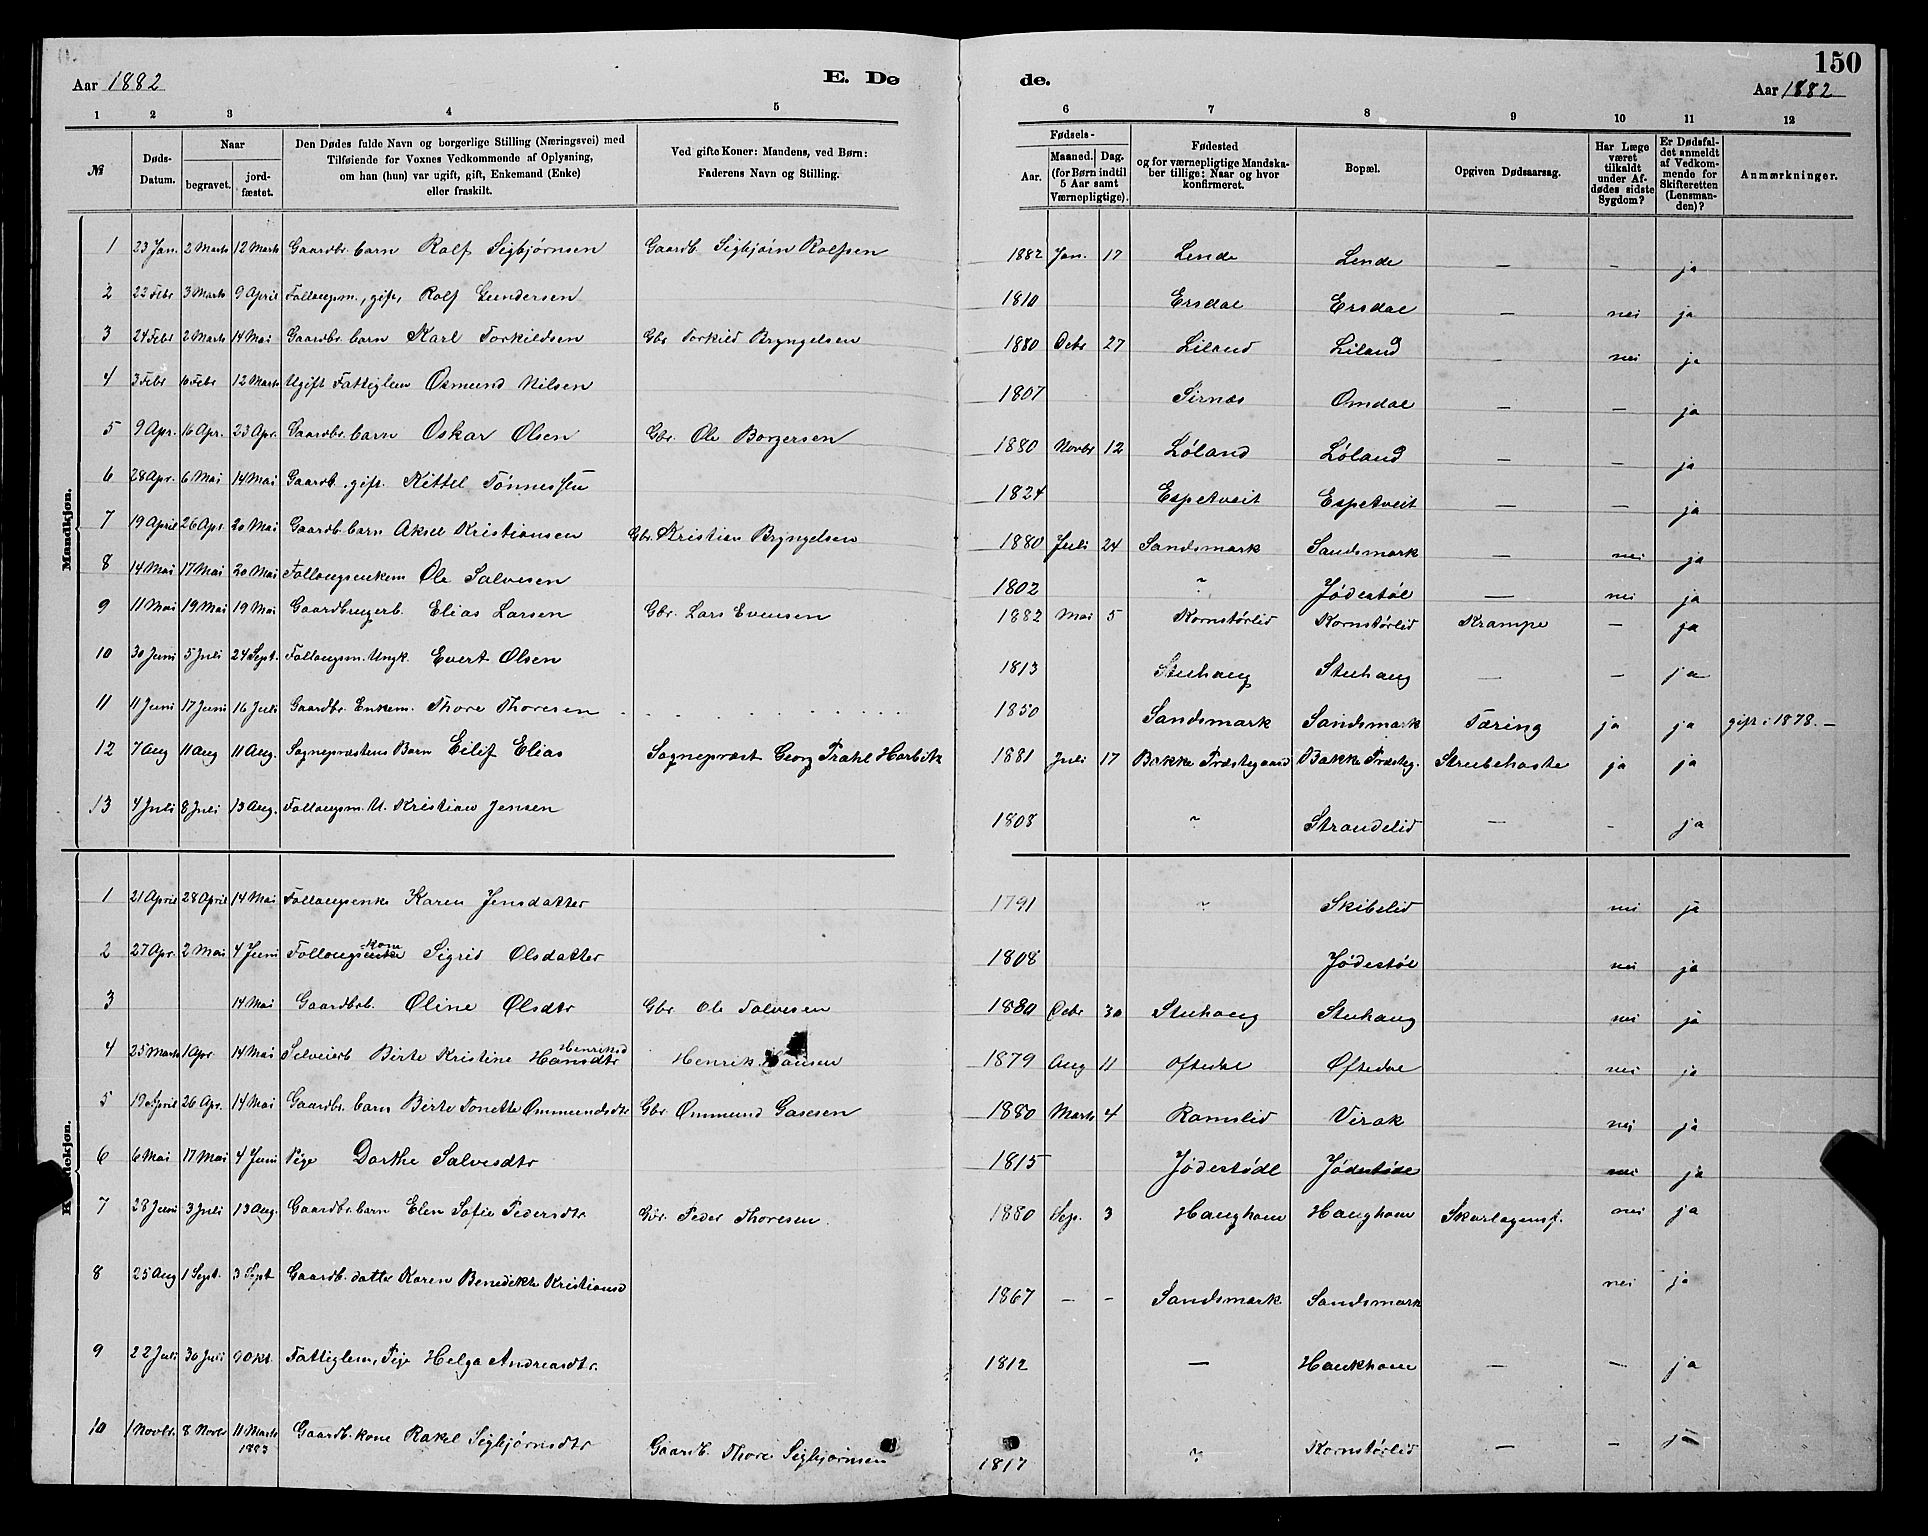 150
Aar 1882 E. Dø de. Aar 1882
1 2 3 4 5 6 7 8 9 10 11 12
№ Døds-Datum. Naar begravet. jordfæstet. Den Dødes fulde Navn og borgerlige Stilling (Næringsvei) med Tilføiende for Voxnes Vedkommende af Oplysning, om han (hun) var ugift, gift, Enkemand (Enke) eller fraskilt. Ved gifte Koner: Mandens, ved Børn: Faderens Navn og Stilling. Fødsels- Aar. Maaned. Dag. (for Børn indtil 5 Aar samt Værnepligtige). Fødested og for værnepligtige Mandskaber tillige: Naar og hvor konfirmeret. Bopæl. Opgiven Dødsaarsag. Har Læge været tilkaldt under Afdødes sidste Sygdom? Er Dødsfaldet anmeldt af Vedkommende for Skifteretten (Lensmanden)? Anmærkninger.
Mandkjøn.
1 23 Jan. 2 Marts 12 Marts Gaardbr. barn Rolf Sigbjørnsen Gaardb. Sigbjørn Rolfsen 1882 Jan. 17 Lende Lende — — ja
2 22 Febr 3 Marts 9 April Follougsm., gift, Rolf Gundersen 1810 Ersdal Ersdal — nei ja
3 24 Febr 2 Marts 14 Mai Gaardbr. barn Karl Torkildsen Gbr. Torkild Bryngelsen 1880 Octr 27 Liland Liland — nei ja
4 3 Febr 10 Febr 12 Marts Ugift Fattiglem Osmund Nilsen 1807 Sirnæs Omdal — — ja
5 9 Apr. 16 Apr. 23 Apr. Gaardbr. barn Oskar Olsen Gbr. Ole Borgersen 1880 Novbr 12 Løland Løland — — ja
6 28 Apr. 6 Mai 14 Mai Gaardb. gift. Kittel Tønnessen 1824 Espetveit Espetveit — — ja
7 19 April 26 Apr. 20 Mai Gaardb. barn Aksel Kristiansen Gbr. Kristian Bryngelsen 1880 Juli 24 Sandsmark Sandsmark — nei ja
8 14 Mai 17 Mai 20 Mai Follougsenkem Ole Salvesen 1802 " Jødestøl — nei ja
9 11 Mai 19 Mai 19 Mai Gaardbrugerb. Elias Larsen Gbr. Lars Evensen 1882 Mai 5 Kornstørlid Kornstørlid Krampe — ja
10 30 Juni 5 Juli 24 Sept. Follougsm. Ungk. Evert Olsen 1813 Stuhaug Stuhaug — — ja
11 11 Juni 17 Juni 16 Juli Gaardbr. Enkem. Thore Thoresen . . . . . . . . . . 1850 Sandsmark Sandsmark Tæring ja ja gift i 1878. —
12 7 Aug 11 Aug 11 Aug. Sognepræstens Barn Eilif Elias Sognepræst Georg Prahl Harbitz 1881 Juli 17 Bakke Præstegaard Bakke Præsteg. Strubehoste ja ja
13 4 Juli 8 Juli 13 Aug. Follougsm. U. Kristian Jensen 1808 " Strandelid — - ja
Kvindekjøn.
1 21 April 28 April 14 Mai Follougsenke Karen Jensdatter 1791 " Skibelid nei ja
2 27 Apr. 2 Mai 4 Juni Follougsenke kone Sigrid Olsdatter 1808 Jødestøl nei ja
3 14 Mai Gaardbrb. Oline Olsdtr Gbr Ole Salvesen 1880 Octr 30 Stuhaug Stuhaug nei ja
4 25 Marts 1 Apr 14 Mai Selveierb Birte Kristine Hansdtr Henriksd Henrik Hansen 1879 Aug 11 Oftedal Oftedal nei ja
5 19 April 26 Apr. 14 Mai Gaardbr. barn Birte Tonette Ommundsdtr Gbr. Ommund Gasesen 1880 Marts 4 Ramslid Virak nei ja
6 6 Mai 17 Mai 4 Juni Pige Dorthe Salvesdtr 1815 Jødestødl Jødestøde nei ja
7 28 Juni 3 Juli 13 Aug. Gaardbr. barn Elen Sofie Pedersdtr Gbr. Peder Thoresen. 1880 Sep. 3 Haughom Haughom Skarlagensf. nei ja
8 25 Aug 1 Sept. 3 Sept Gaardb. datter Karen Benedikte Kristiansd 1867 — - Sandsmark Sandsmark nei ja
9 22 Juli 30 Juli 9 Okt. Fattiglem, Pige Helga Andreasdtr. 1812 — Haukhom — — ja
10 1 Novbr. 8 Novbr 11 Marts 1883 Gaardb. kone Rakel Sigbjørnsdtr Gaardb. Thore Sigbjørnsen 1817 " Kornstørlid — — ja